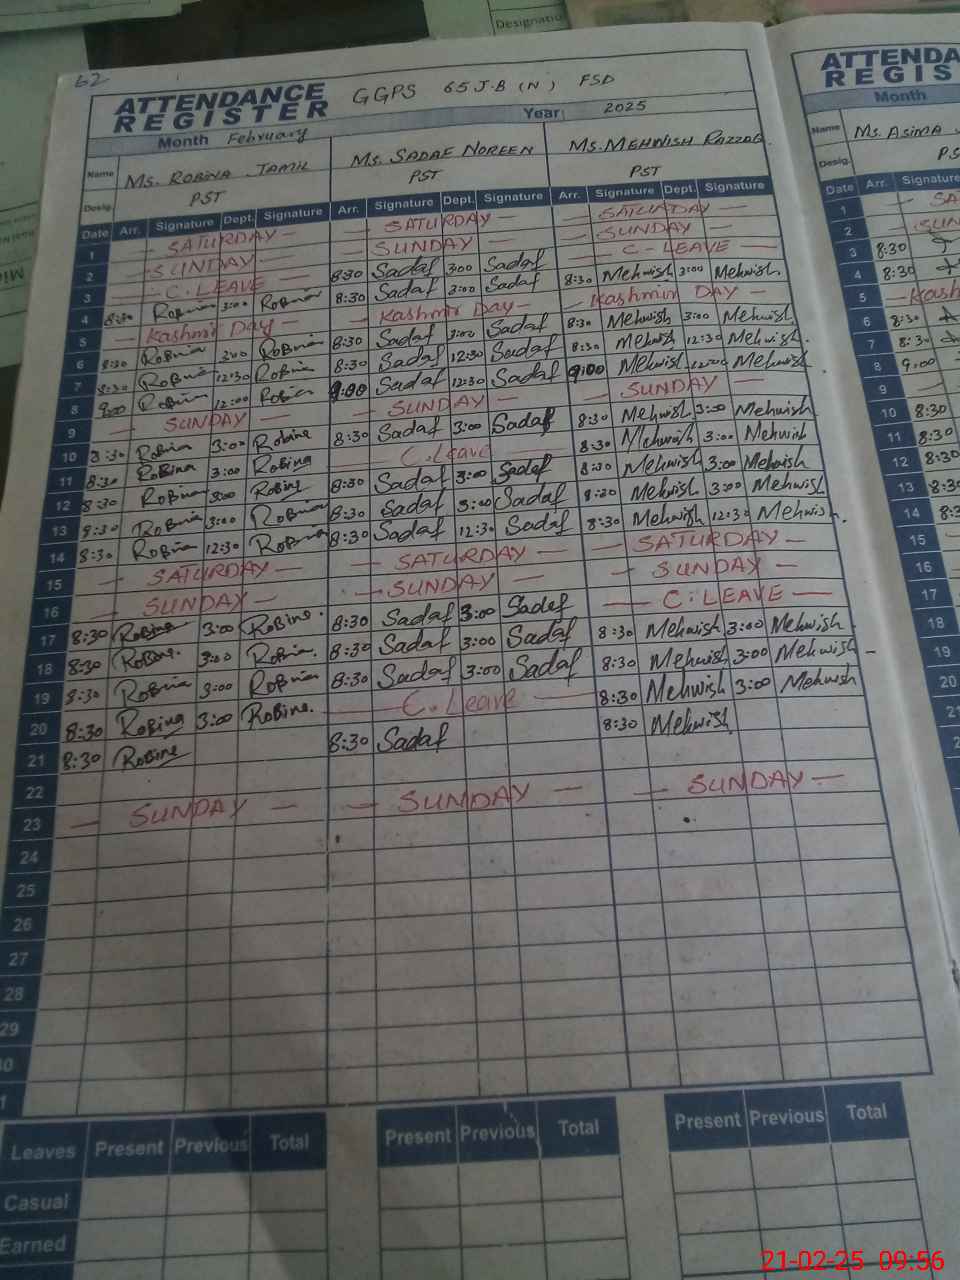 Designatio
62
ATTENDANCE REGISTER GGPS 65 J.B (N) FSD
Month February Year: 2025
Name Ms. ROBINA JAMIL Ms. SADAF NOREEN Ms. MEHWISH RAZZAQ
Desig. PST PST PST
Date Arr. Signature Dept. Signature Arr. Signature Dept. Signature Arr. Signature Dept. Signature
1 — SATURDAY — — SATURDAY — — SATURDAY —
2 — SUNDAY — — SUNDAY — — SUNDAY —
3 — C. LEAVE — 8:30 Sadaf 3:00 Sadaf — C-LEAVE —
4 8:30 Robina 3:00 Robina 8:30 Sadaf 3:00 Sadaf 8:30 Mehwish 3:00 Mehwish
5 — Kashmir Day — — Kashmir Day — — Kashmir DAY —
6 8:30 Robina 3:00 Robina 8:30 Sadaf 3:00 Sadaf 8:30 Mehwish 3:00 Mehwish
7 8:30 Robina 12:30 Robina 8:30 Sadaf 12:30 Sadaf 8:30 Mehwish 12:30 Mehwish.
8 9:00 Robina 12:00 Robina 9:00 Sadaf 12:30 Sadaf 9:00 Mehwish 12:00 Mehwish
9 — SUNDAY — — SUNDAY — — SUNDAY —
10 8:30 Robina 3:00 Robina 8:30 Sadaf 3:00 Sadaf 8:30 Mehwish 3:00 Mehwish
11 8:30 Robina 3:00 Robina — C. Leave — 8:30 Mehwish 3:00 Mehwish
12 8:30 Robina 3:00 Robina 8:30 Sadaf 3:00 Sadaf 8:30 Mehwish 3:00 Mehwish
13 8:30 Robina 3:00 Robina 8:30 Sadaf 3:00 Sadaf 8:30 Mehwish 3:00 Mehwish
14 8:30 Robina 12:30 Robina 8:30 Sadaf 12:30 Sadaf 8:30 Mehwish 12:30 Mehwish.
15 — SATURDAY — — SATURDAY — — SATURDAY —
16 — SUNDAY — — SUNDAY — — SUNDAY —
17 8:30 Robina 3:00 Robina. 8:30 Sadaf 3:00 Sadaf — C. LEAVE —
18 8:30 Robina. 3:00 Robina. 8:30 Sadaf 3:00 Sadaf 8:30 Mehwish 3:00 Mehwish
19 8:30 Robina 3:00 Robina 8:30 Sadaf 3:00 Sadaf 8:30 Mehwish 3:00 Mehwish
20 8:30 Robina 3:00 Robina. — C. Leave — 8:30 Mehwish 3:00 Mehwish
21 8:30 Robina 8:30 Sadaf 8:30 Mehwish
22
23 — SUNDAY — — SUNDAY — — SUNDAY —
24
25
26
27
28
29
30
31
Leaves Present Previous Total Present Previous Total Present Previous Total
Casual
Earned
ATTENDA
REGIS
Month
Name Ms. ASIMA
Desig. PS
Date Arr. Signature
1 — SA
2 — SUN
3 8:30
4 8:30
5 — Kash
6 8:30
7 8:30
8 9:00
9
10 8:30
11 8:30
12 8:30
13 8:3
14 8:3
15
16
17
18
19
20
21
21-02-25 09:56